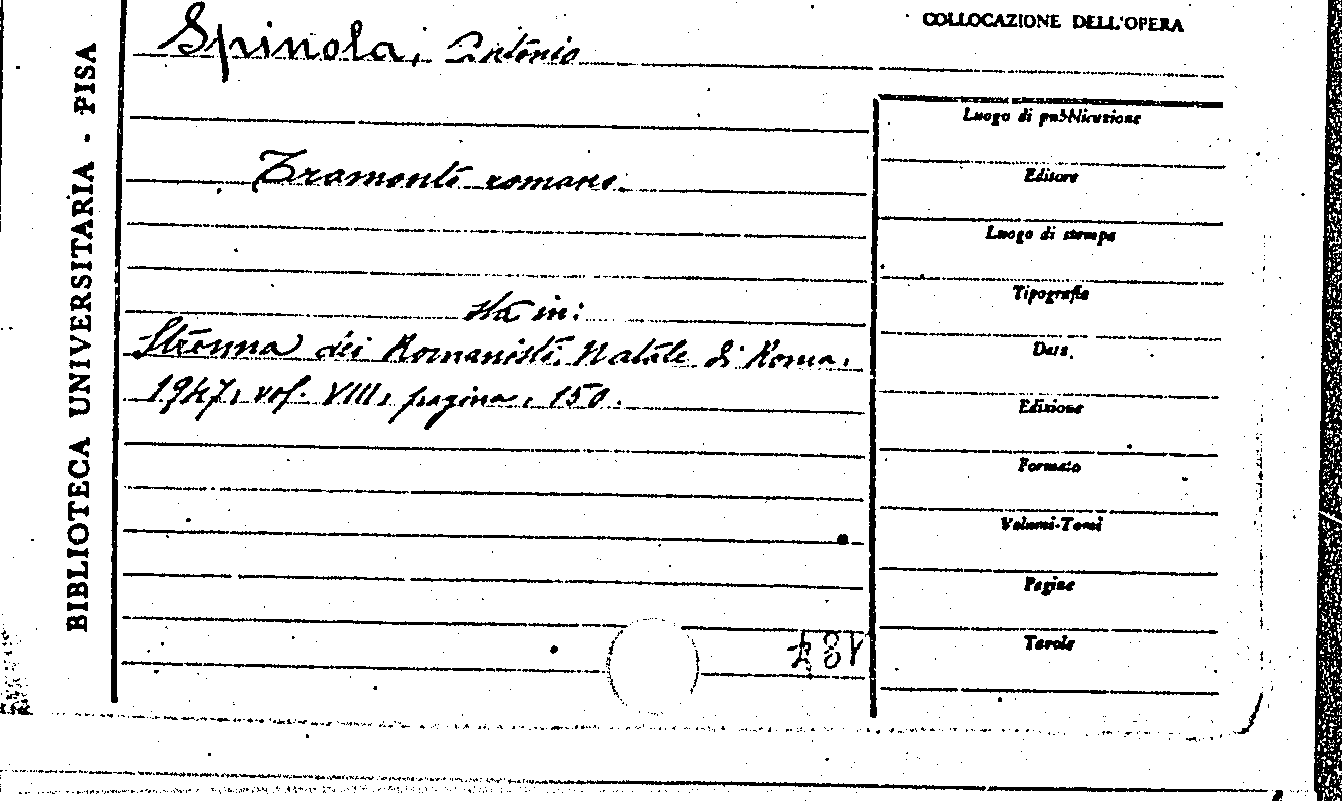 BIBLIOTECA UNIVERSITARIA - PISA
Spinola, António
Tramonti romani.
sta in:
Strenna dei Romanisti. Natale di Roma.
1947, vol. VIII, pagina, 150.
COLLOCAZIONE DELL'OPERA
Luogo di pubblicazione
Editore
Luogo di stampa
Tipografia
Data
Edizione
Formato
Volumi-Tomi
Pagine
Tavole